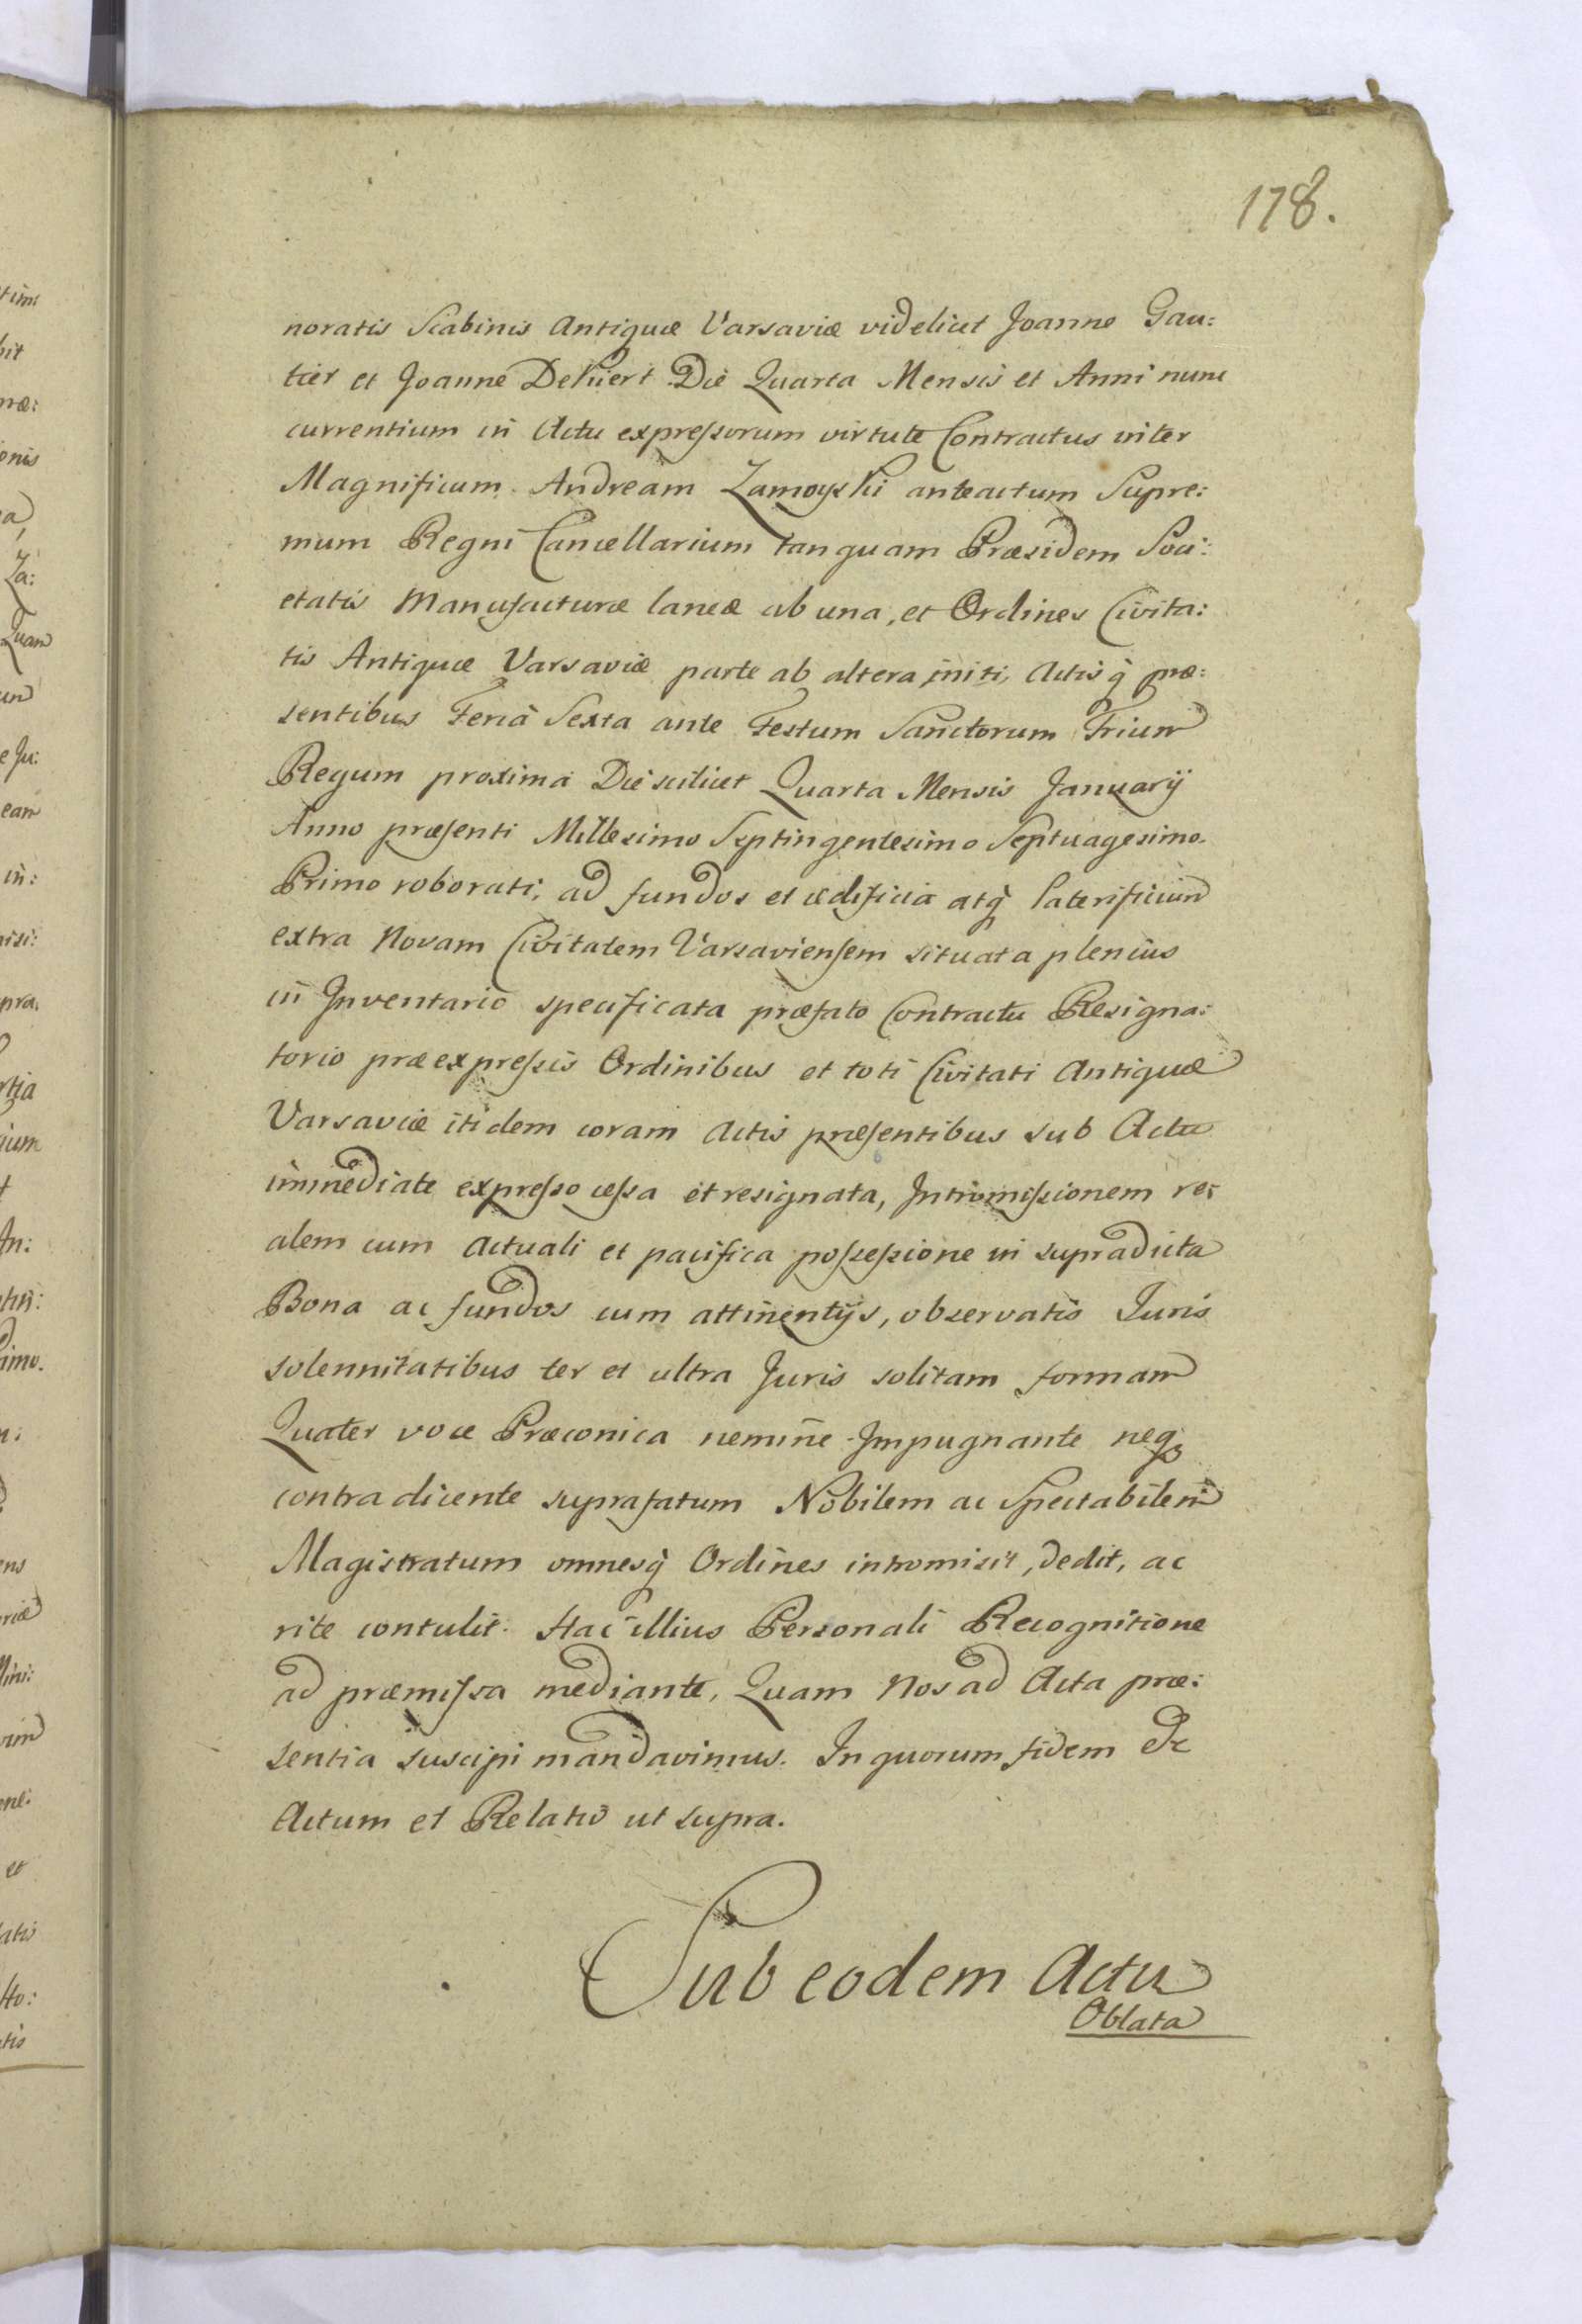 178.
noratis Scabinis Antiquæ Varsaviæ videlicet Joanne Gau:
tier et Joanne Dekiert Die Quarta Mensis et Anni nunc
currentium in Actu expressorum virtute Contractus inter
Magnificum Andream Zamoyski anteactum Supre:
mum Regni Cancellarium tanquam Præsidem Soci:
etatis Manufacturæ laneæ ab una, et Ordines Civita:
tis Antiquæ Varsaviæ parte ab altera initi, Actisq̀ præ:
sentibus Feria Sexta ante Festum Sanctorum Trium
Regum proxima Die scilicet Quarta Mensis Januarij
Anno præsenti Millesimo Septingentesimo Septuagesimo
Primo roborati, ad fundos et ædificia atq̀ laterificium
extra Novam Civitatem Varsaviensem situata plenius
in Inventario specificata præfato Contractu Resigna:
torio præexpressis Ordinibus et toti Civitati Antiquæ
Varsaviæ itidem coram Actis præsentibus sub Actu
immediate expresso cessa et resignata, Intromissionem re:
alem cum Actuali et pacifica possessione in supradicta
Bona ac fundos cum attinentijs, observatis Juris
solennitatibus ter et ultra Juris solitam formam
Quater voce Præconica nemine Impugnante neq̀
contradicente suprafatum Nobilem ac Spectabilem
Magistratum omnesq̀ Ordines intromisit, dedit, ac
rite contulit. Hac illius Personali Recognitione
ad præmissa mediante, Quam Nos ad Acta præ:
sentia suscipi mandavimus. In quorum fidem &c
Actum et Relatio ut supra.
Sub eodem Actu
Oblata